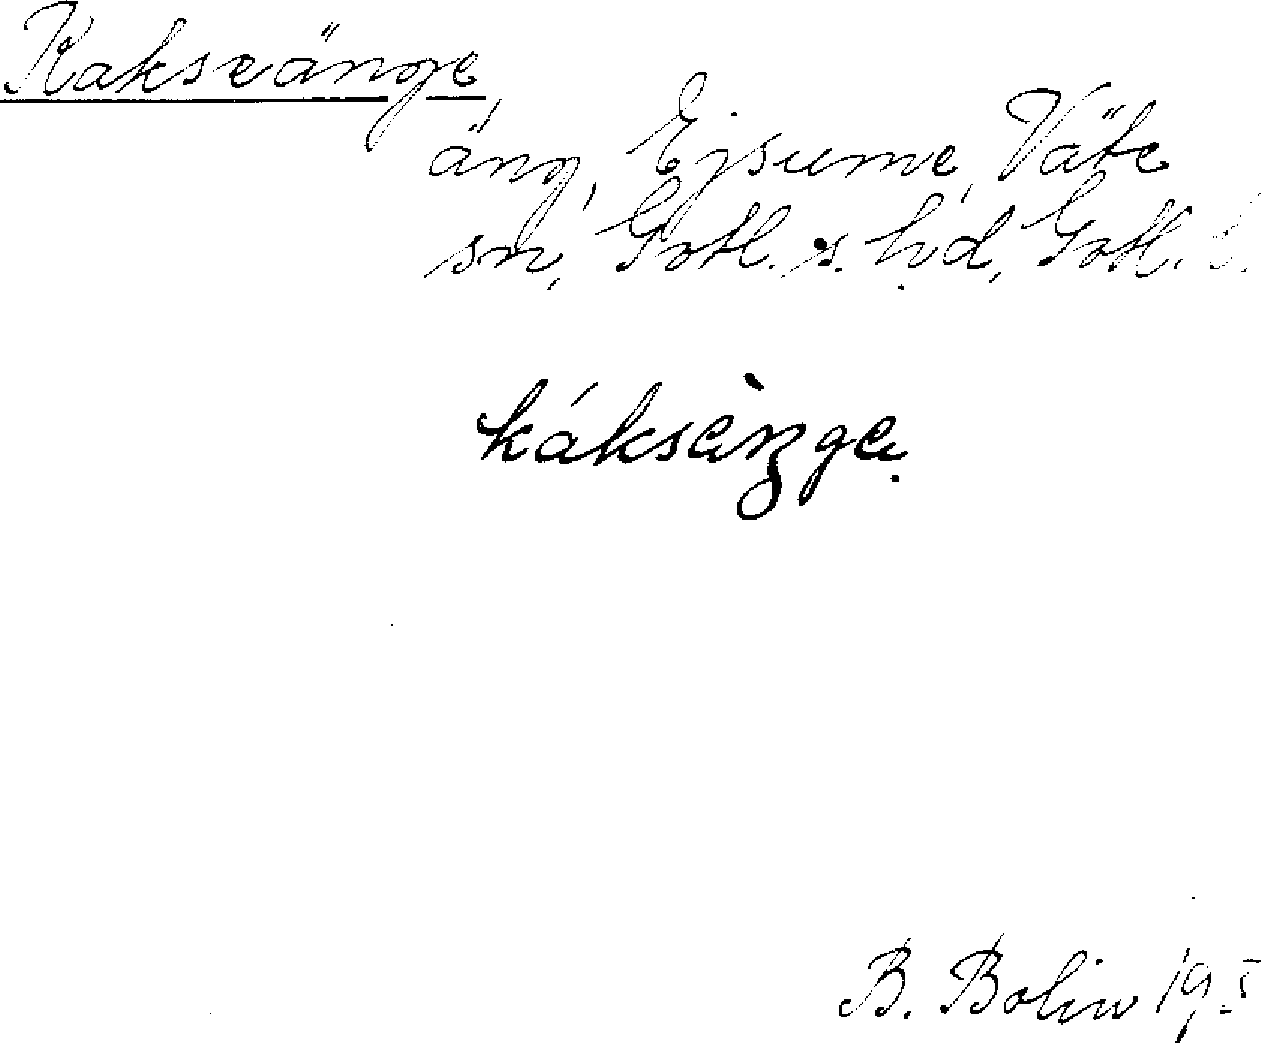 Kakseänge
äng, Ejsume, Väte
sn, Gotl. s. hd, Gotl. l.
káksèŋge.
B. Bolin 19